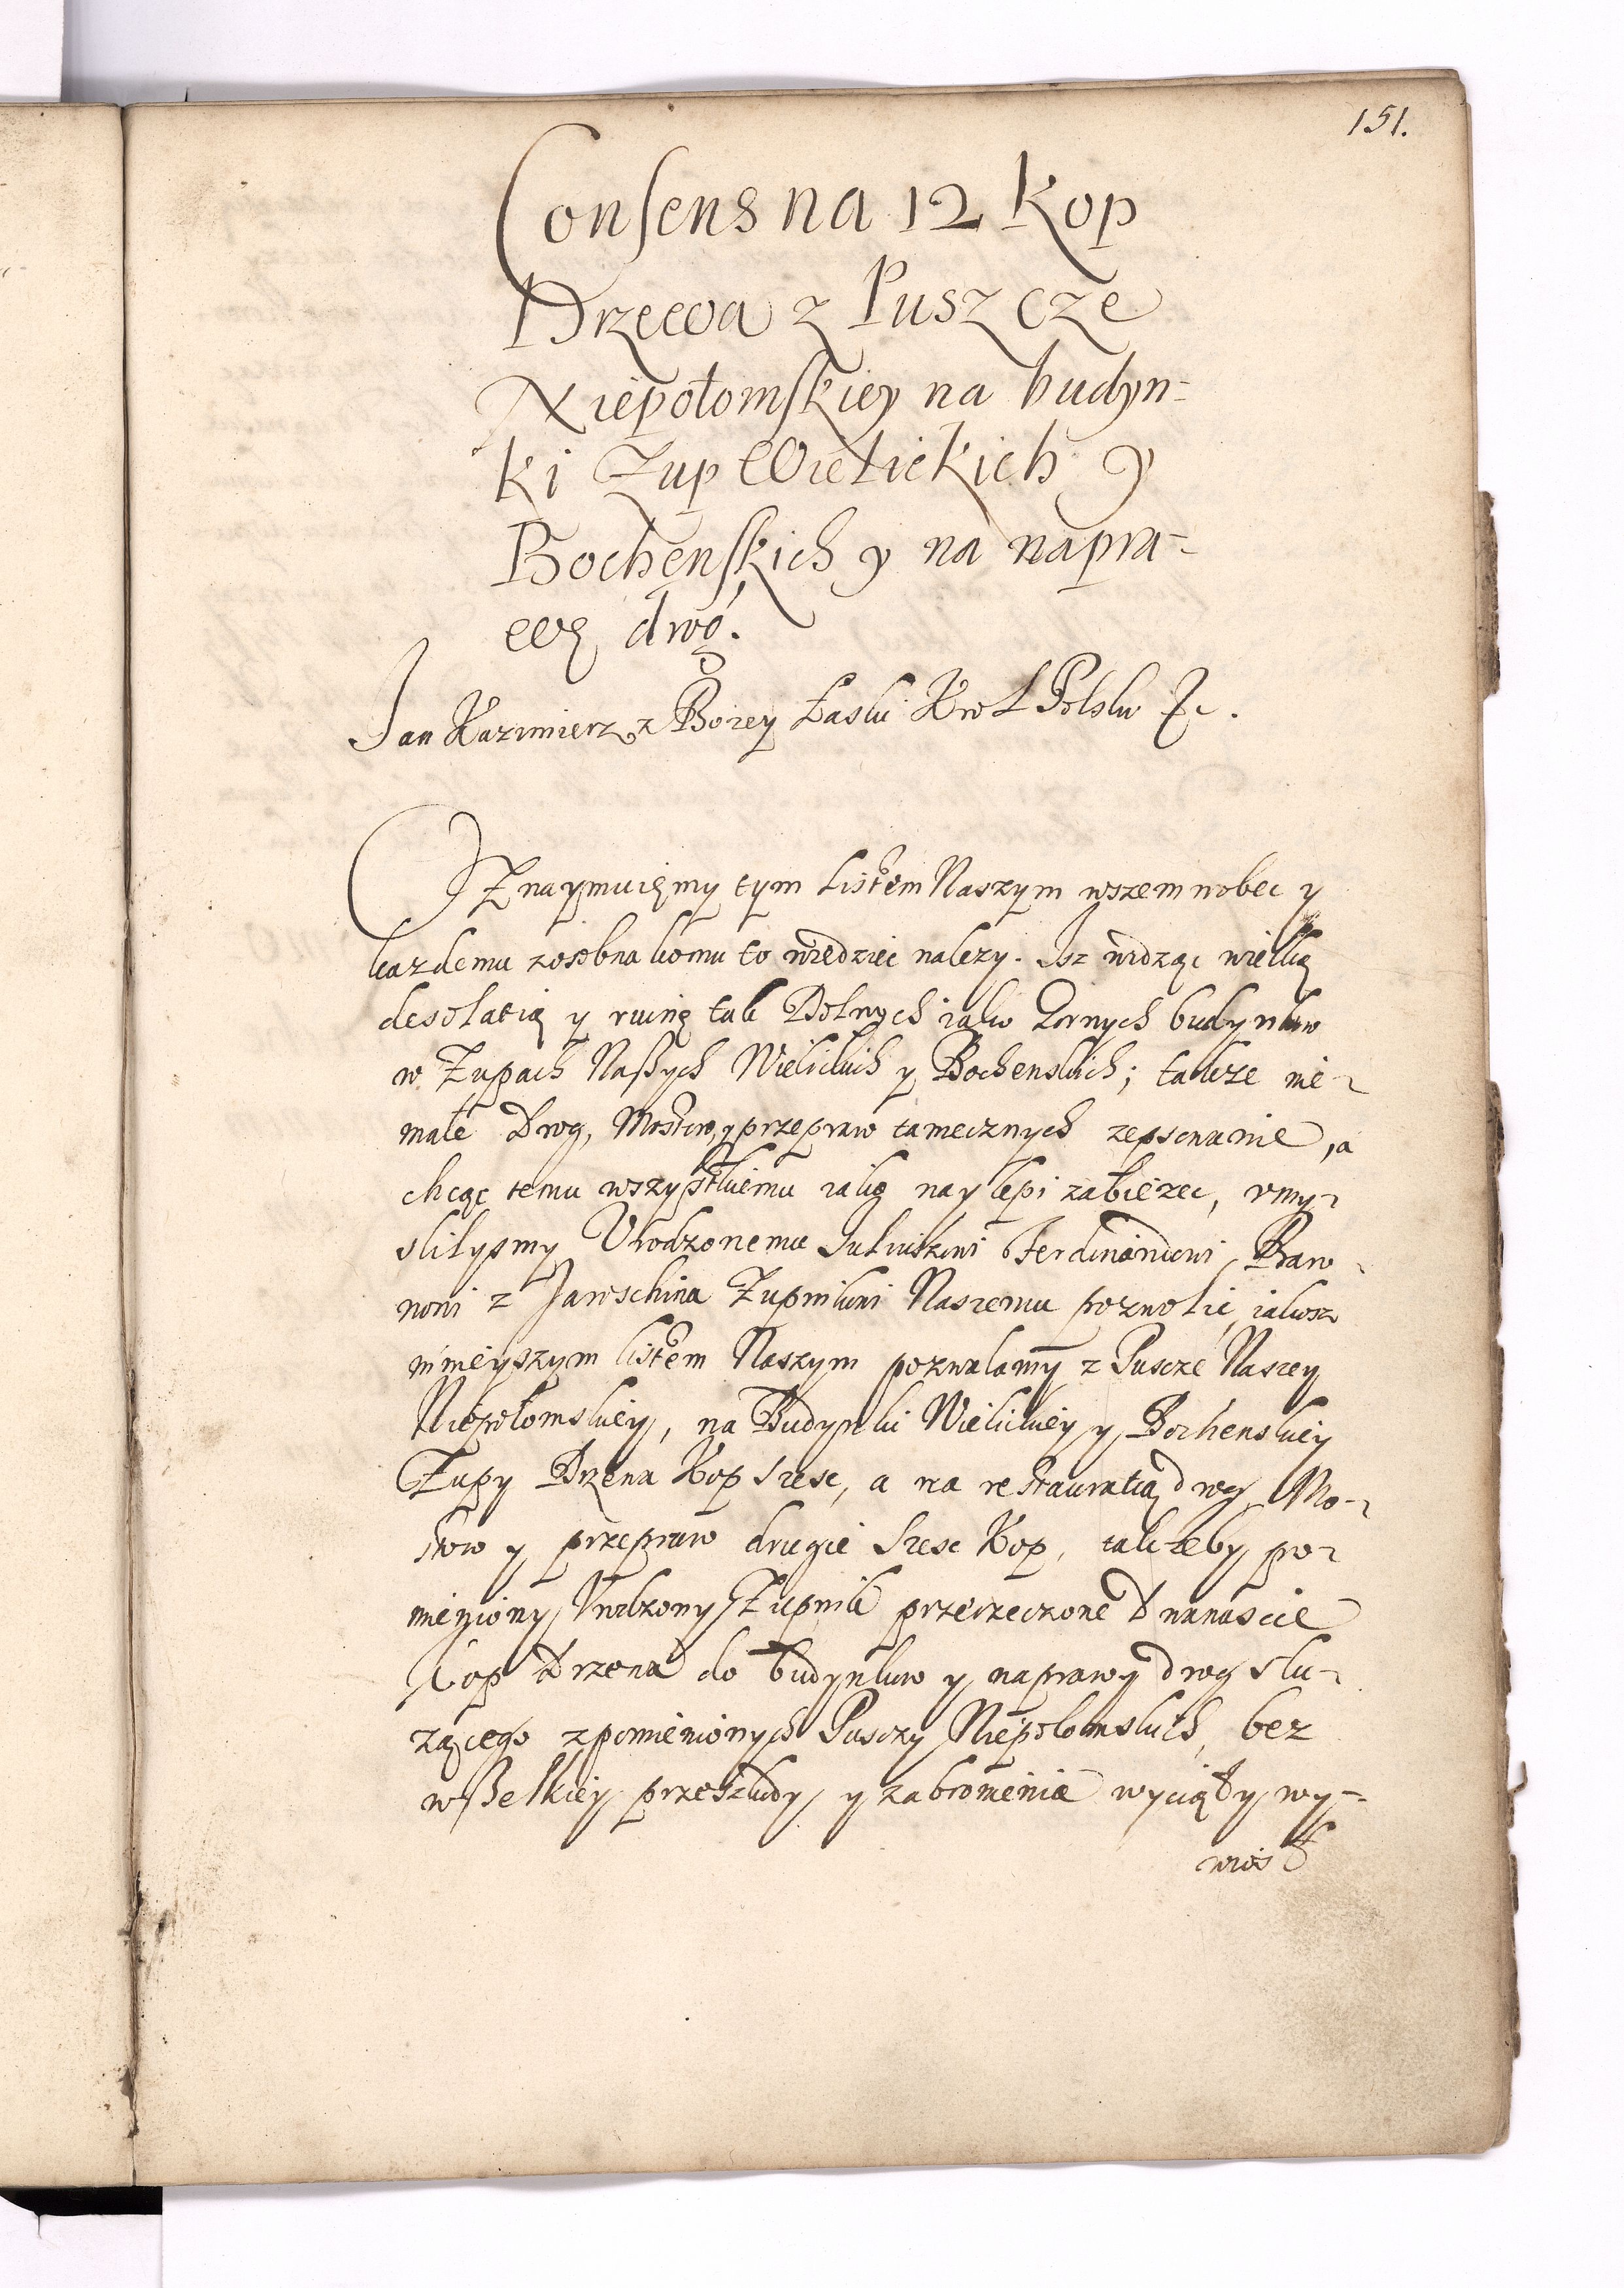 151.
Consens na 12 Kop
Drzewa z Puszcze
Niepołomskiey na budyn-
ki Zup Wielickich y
Bochenskich y na napra-
wę dróg.
Jan Kazimierz z Bozey Łaski Krol Polski &c.
OZnaymuięmy tym Listem Naszym wszem wobec y
kazdemu zosobna komu to wiedziec nalezy. Isz widząc wielką
desolatią y ruinę tak Dolnych iako Gornych budynkow
w Zupach Naßych Wielickich y Bochenskich; takze nie-
małe Drog, Mostow, y przepraw tamecznych zepsowanie, a
chcąc temu wszystkiemu iako naylepi zabiezec, vmy-
slilysmy Vrodzonemu Ferdinandowi Baro-
nowi z Zupnikowi Naszemu pozwolic, iakosz
ninieyszym listem Naszym pozwalamy z Puscze Naszey
Niepołomskiey, na Budynki Wielickiey y Bochenskiey
Zupy Drzewa Kop szesc, a na restauratią drog Mo-
stow y przepraw drugie szesc Kop, tak zeby po-
mieniony Vrodzony Zupnik przerzeczone Dwanascie
Kop Drzewa do budynkow y naprawy drog slu-
zącego z pomienionych Pusczy Niepolomskich, bez
wßelkiey przeszkody y zabronienia wyciął y wy-
wiosł